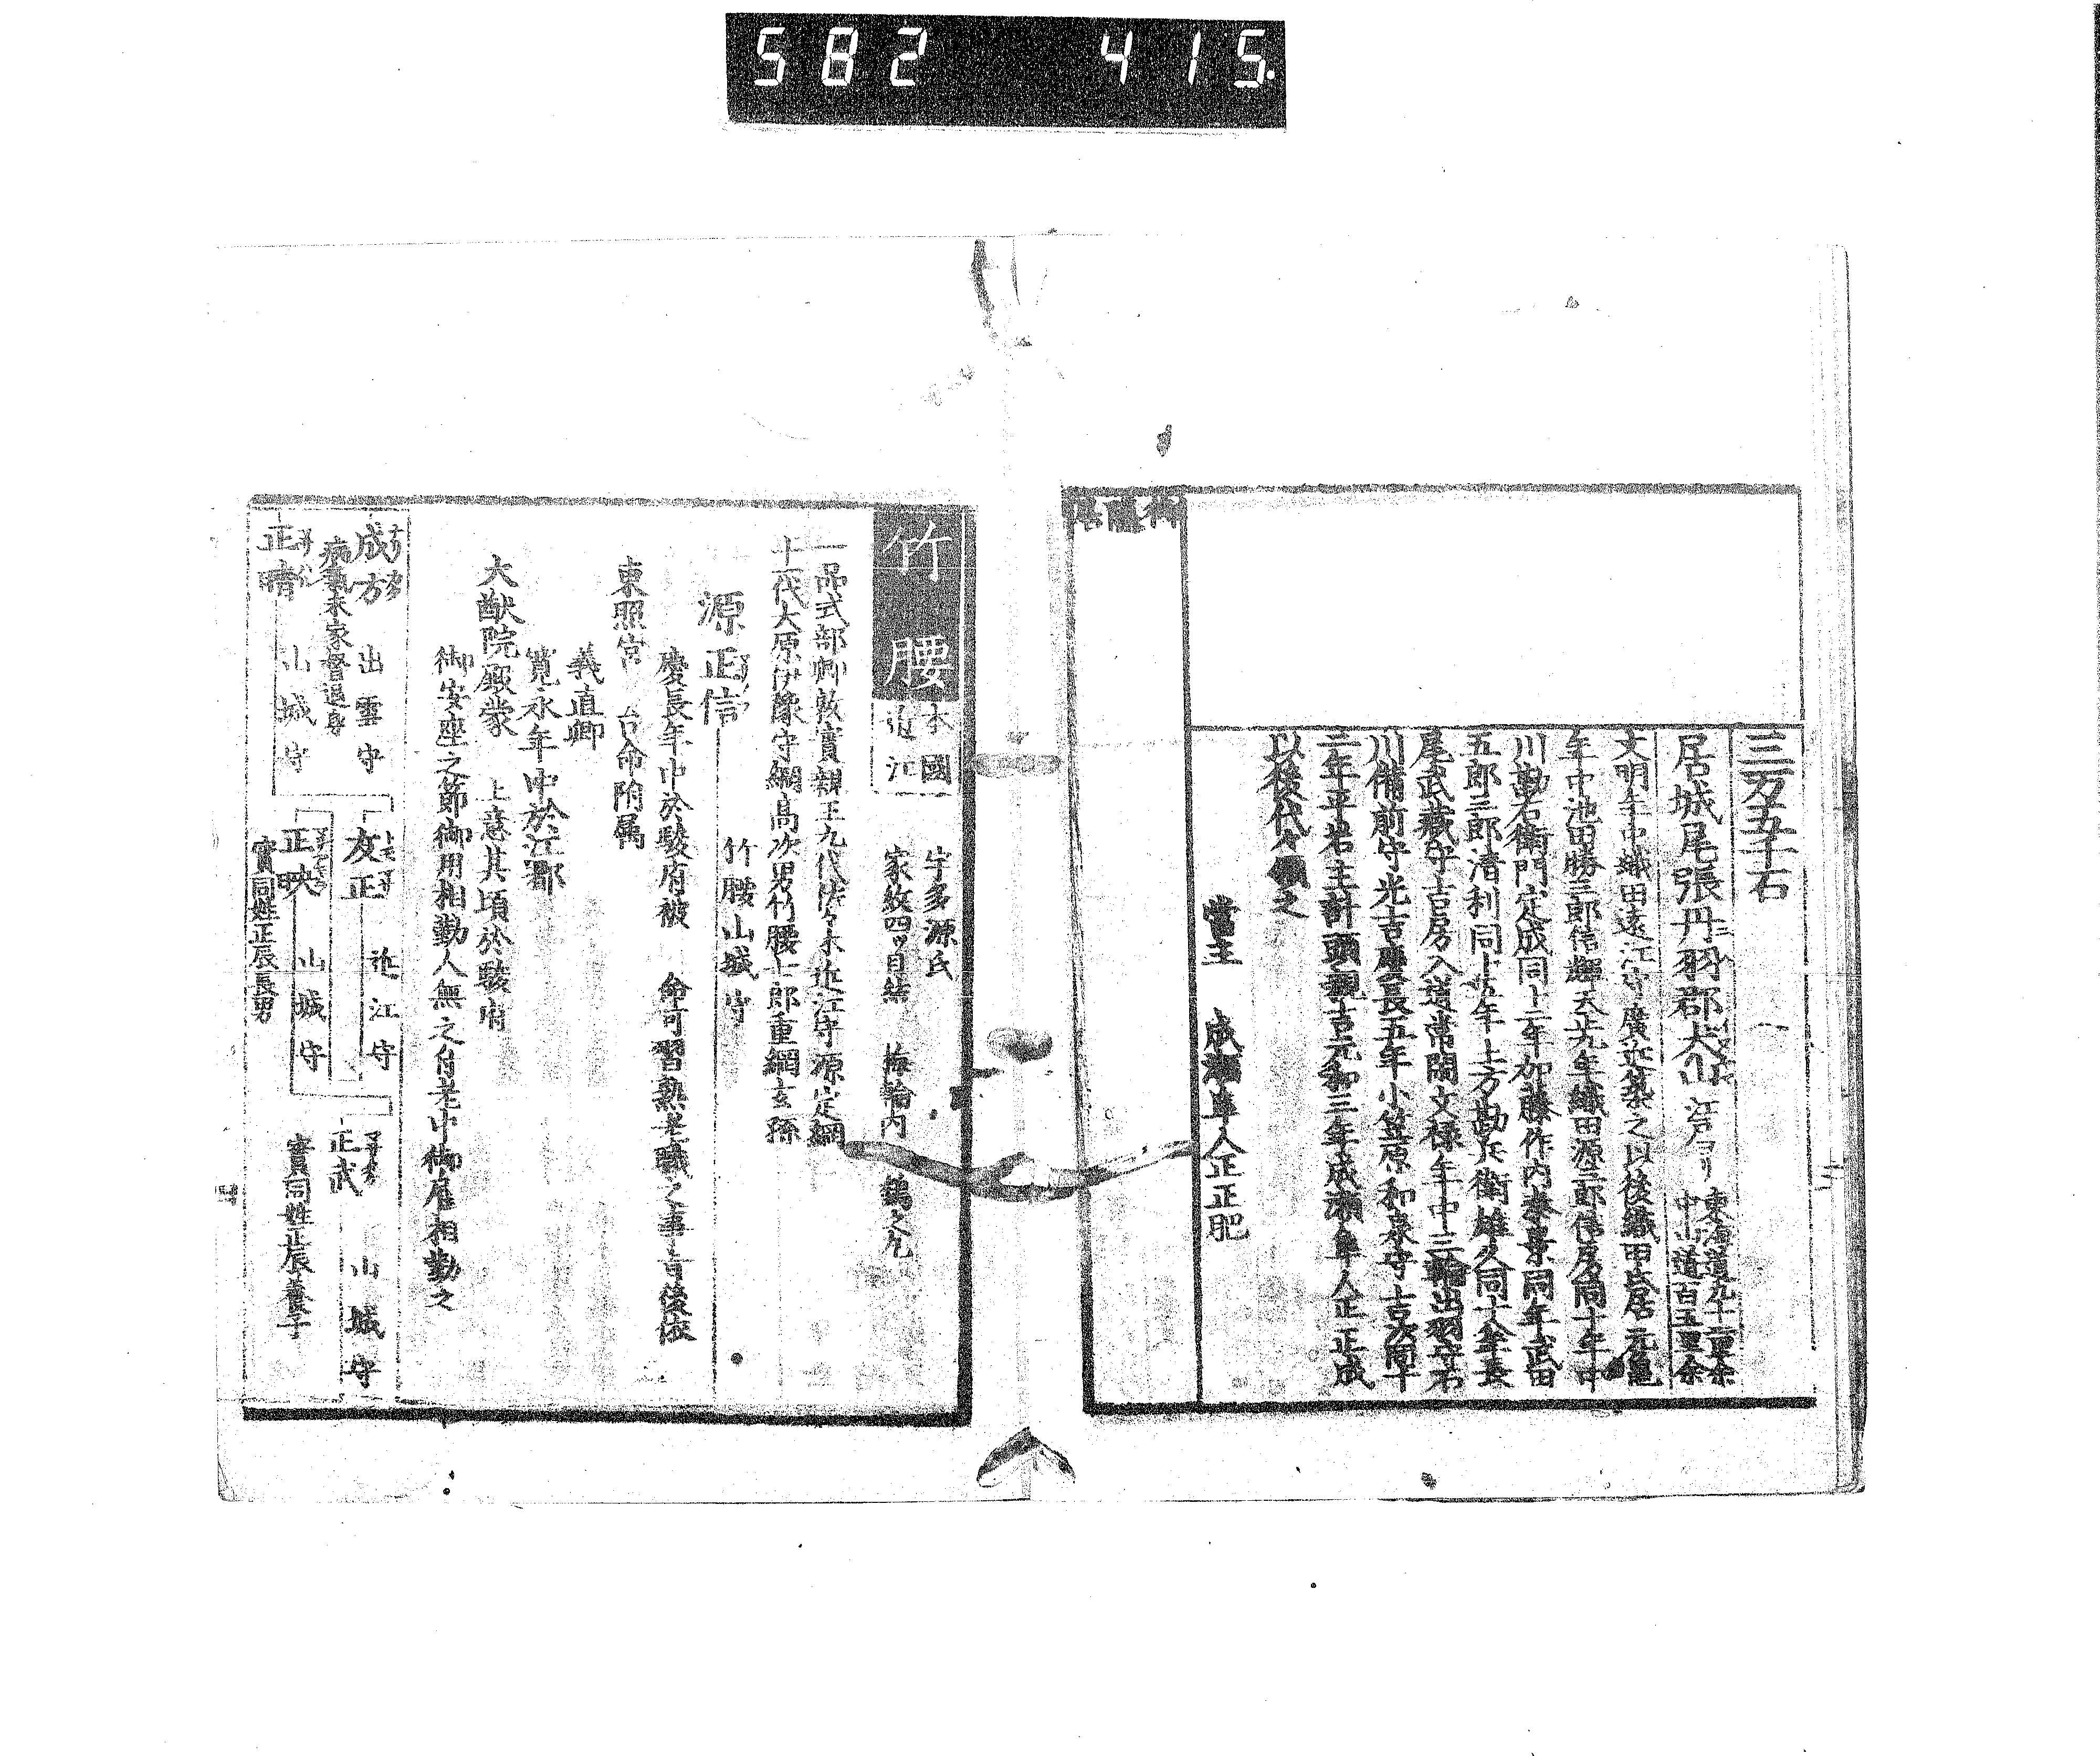 582 415.
三万五千石
居城尾張丹羽郡犬山 江戸ヨリ 東海道九十二里余
中山道百五里余
文明年中織田遠江守廣近築之以後織田氏居元亀
年中池田勝三郎信輝天正九年織田源三郎信房同十年中
川勘右衛門定成同十二年加藤作内泰景同年武田
五郎三郎清利同十五年土方勘兵衛雄久同十八年長
尾武藏守吉房入道常閑文禄年中三輪出羽守若
川備前守光吉慶長五年小笠原和泉守吉次同十
二年平岩主計頭親吉元和三年成瀬隼人正正成
以後代々領之
當主 成瀬隼人正正肥
竹腰
本國
近江
宇多源氏
家紋四ツ目結 梅輪内 鶴之丸
一品式部卿敦實親王九代佐々木近江守源定綱
十一代大原伊豫守綱高次男竹腰七郎重綱玄孫
源正信 竹腰山城守
慶長年中於駿府被 命可習熟宰職之事旨後依
東照宮 台命附属
義直卿
寛永年中於江都
大猷院殿蒙 上意其頃於駿府
御安座之節御用相勤人無之旨老中御雇相勤之
成方 出雲守
病氣未家督退身
友正 近江守
正武 山城守
實同姓正辰養子
正晴 山城守
正映 山城守
實同姓正辰長男